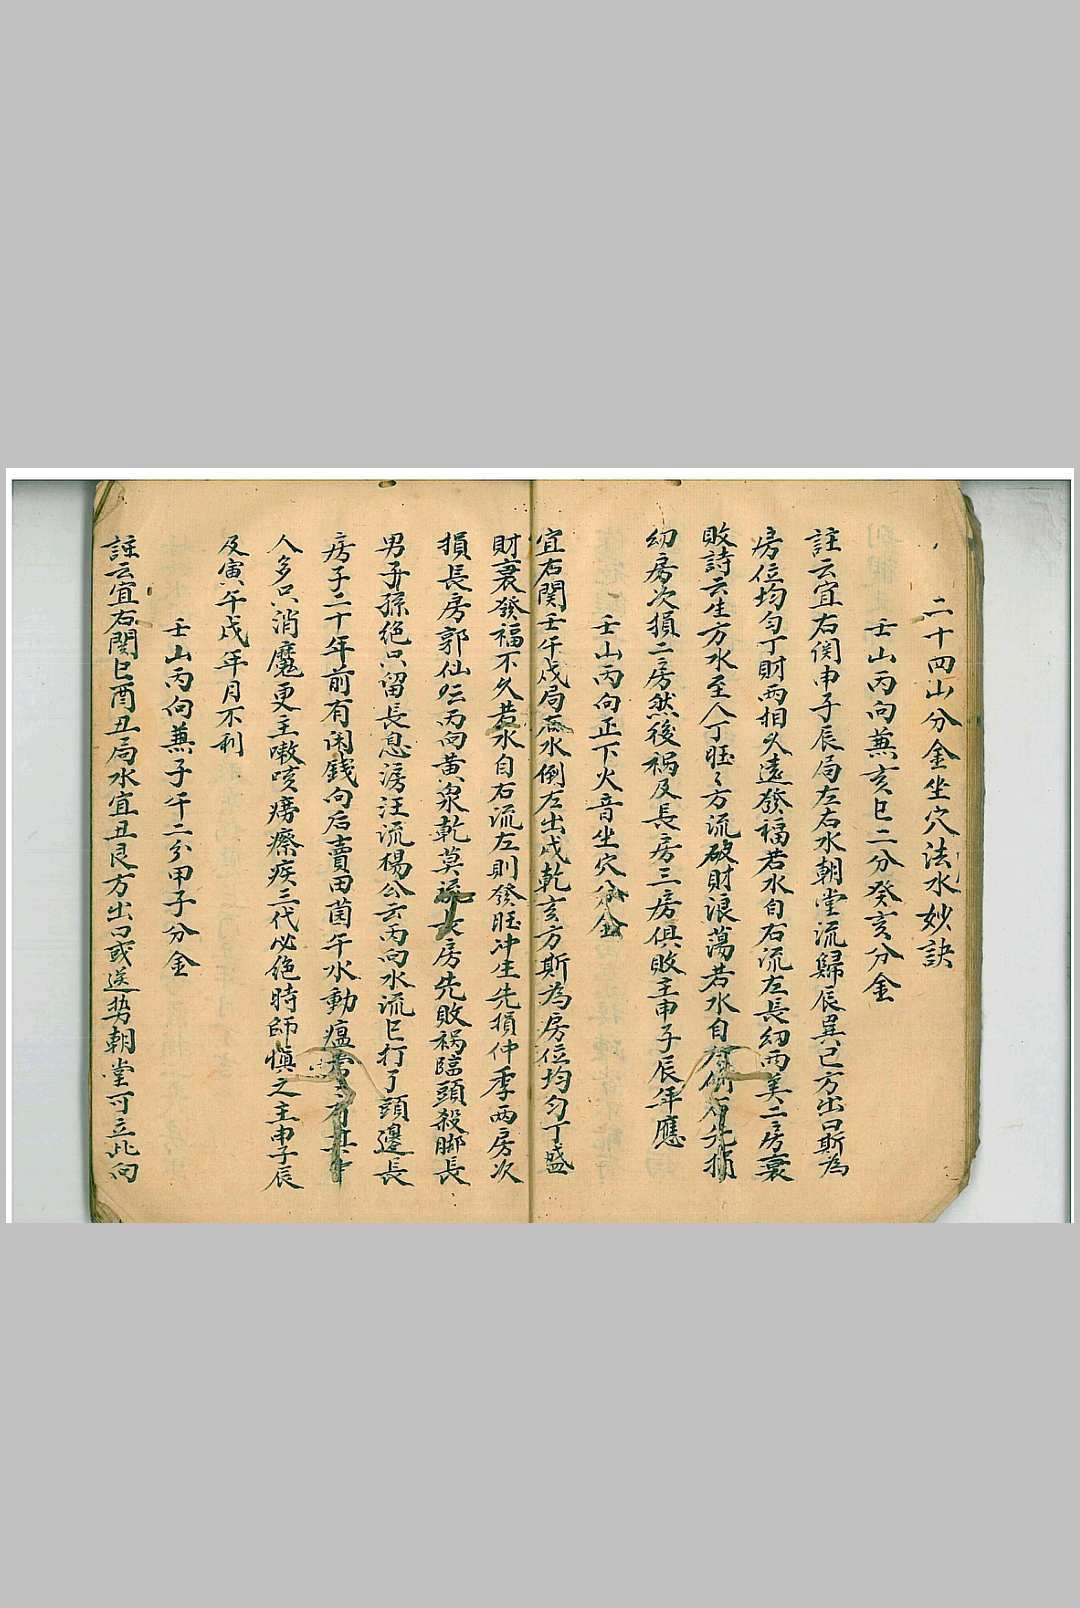 二十四山分金坐穴法水妙訣
壬山丙向兼亥巳二分癸亥分金
註云宜右関申子辰局左右水朝堂流歸辰巽巳方出口斯為
房位均匀丁財两相久遠發福若水自右流左長幼两美二房衰
敗詩云生方水至人丁旺〻方流破財浪蕩若水自 先損
幼房次損二房然後禍及長房三房俱敗主申子辰年應
壬山丙向正下火音坐穴分金
宜右関壬午戌局 水倒左出戌乾亥方斯為房位均匀丁盛
財衰發福不久若水自右流左則發旺冲生先損仲季两房次
損長房郭仙云丙向黄泉乾莫流長房先敗禍臨頭殺脚長
男子孫絶只留長息 汪流楊公云丙向水流巳打了頭邊長
房子二十年前有闲錢向后賣田茵午水動瘟 有其中
人多只消魔更主嗽咳癆瘵疾三代必绝時師慎之主申子辰
及寅午戌年月不利
壬山丙向兼子午二分甲子分金
註云宜右関巳酉丑局水宜丑艮方出口或送势朝堂可立此向